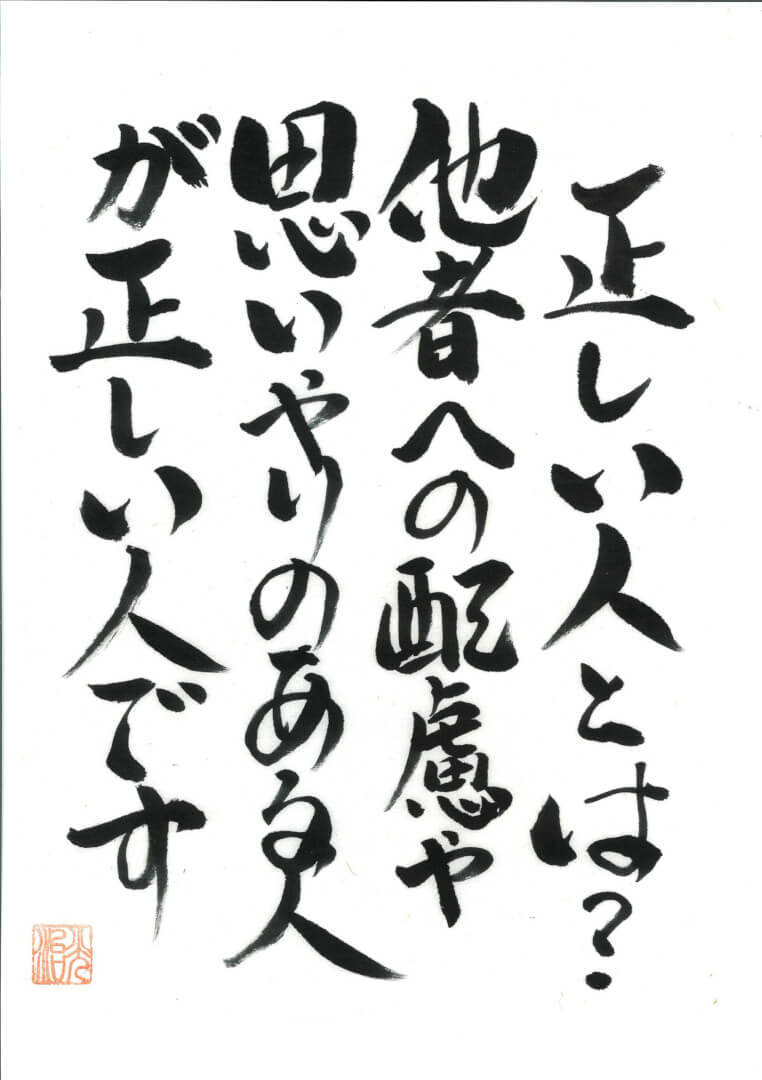 正しい人とは?
他者への配慮や
思いやりのある人
が正しい人です